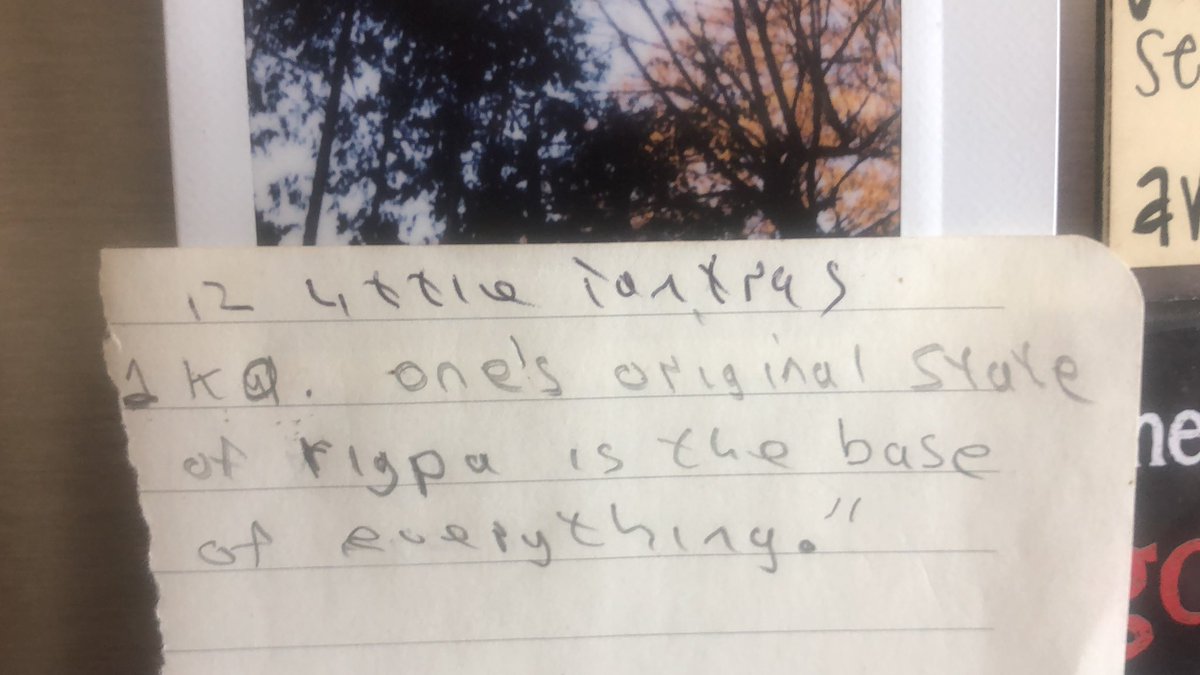 12 Little Tantras
1 Ka. one's original state
of rigpa is the base
of everything."
se
av
he
go